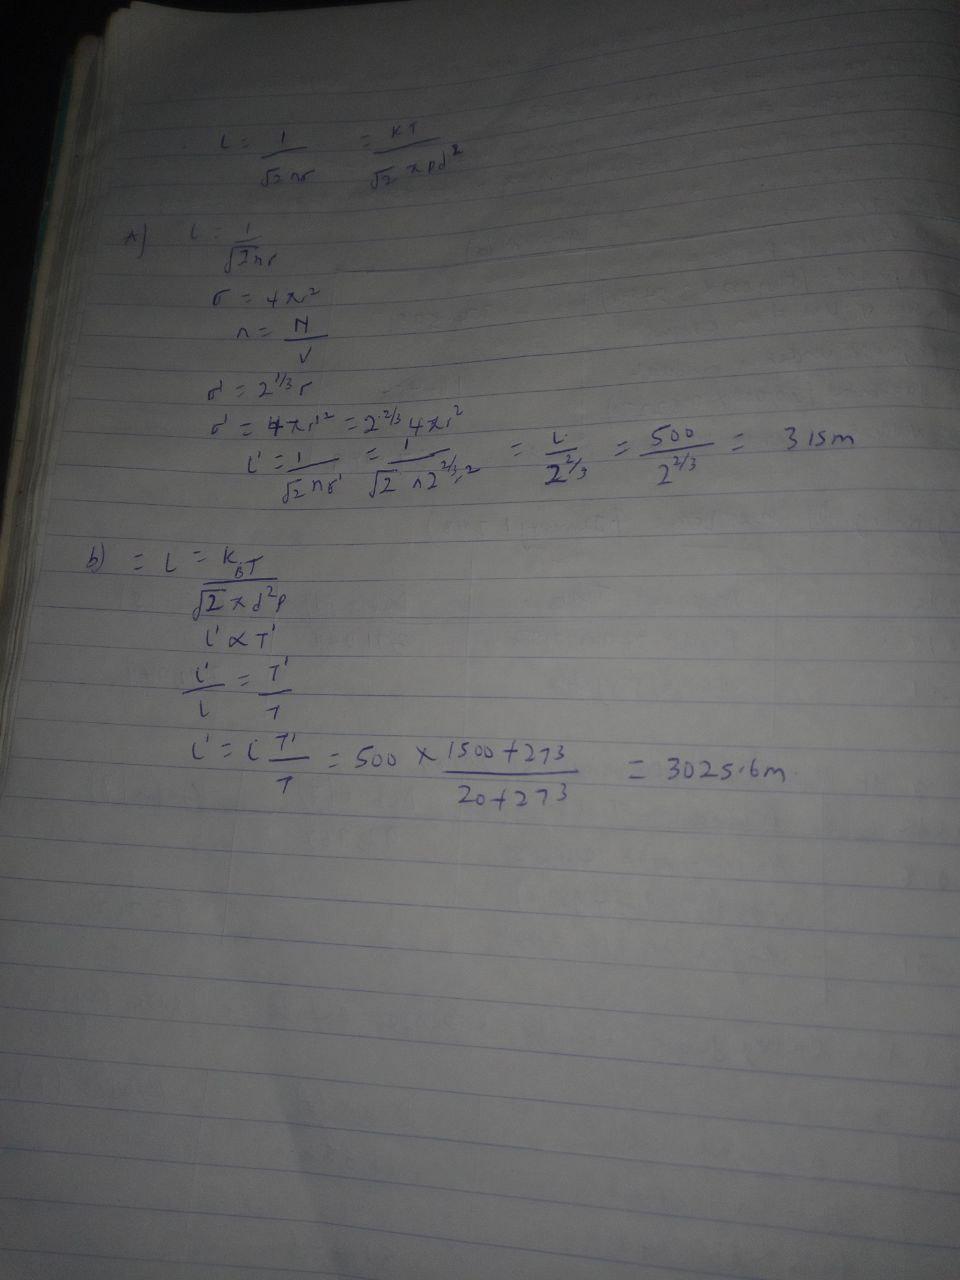 L = 1/√2 nσ = KT/√2 πpd²
A) L = 1/√2 nσ
σ = 4πr²
n = N/V
σ' = 2^1/3 r
σ' = 4πr'² = 2^2/3 4πr²
L' = 1/√2 nσ' = 1/√2 n2^2/3 r² = L/2^2/3 = 500/2^2/3 = 315m
b) = L = K_BT/√2 πd²p
L' ∝ T'
L'/L = T'/T
L' = L T'/T = 500 × 1500+273/20+273 = 3025.6m